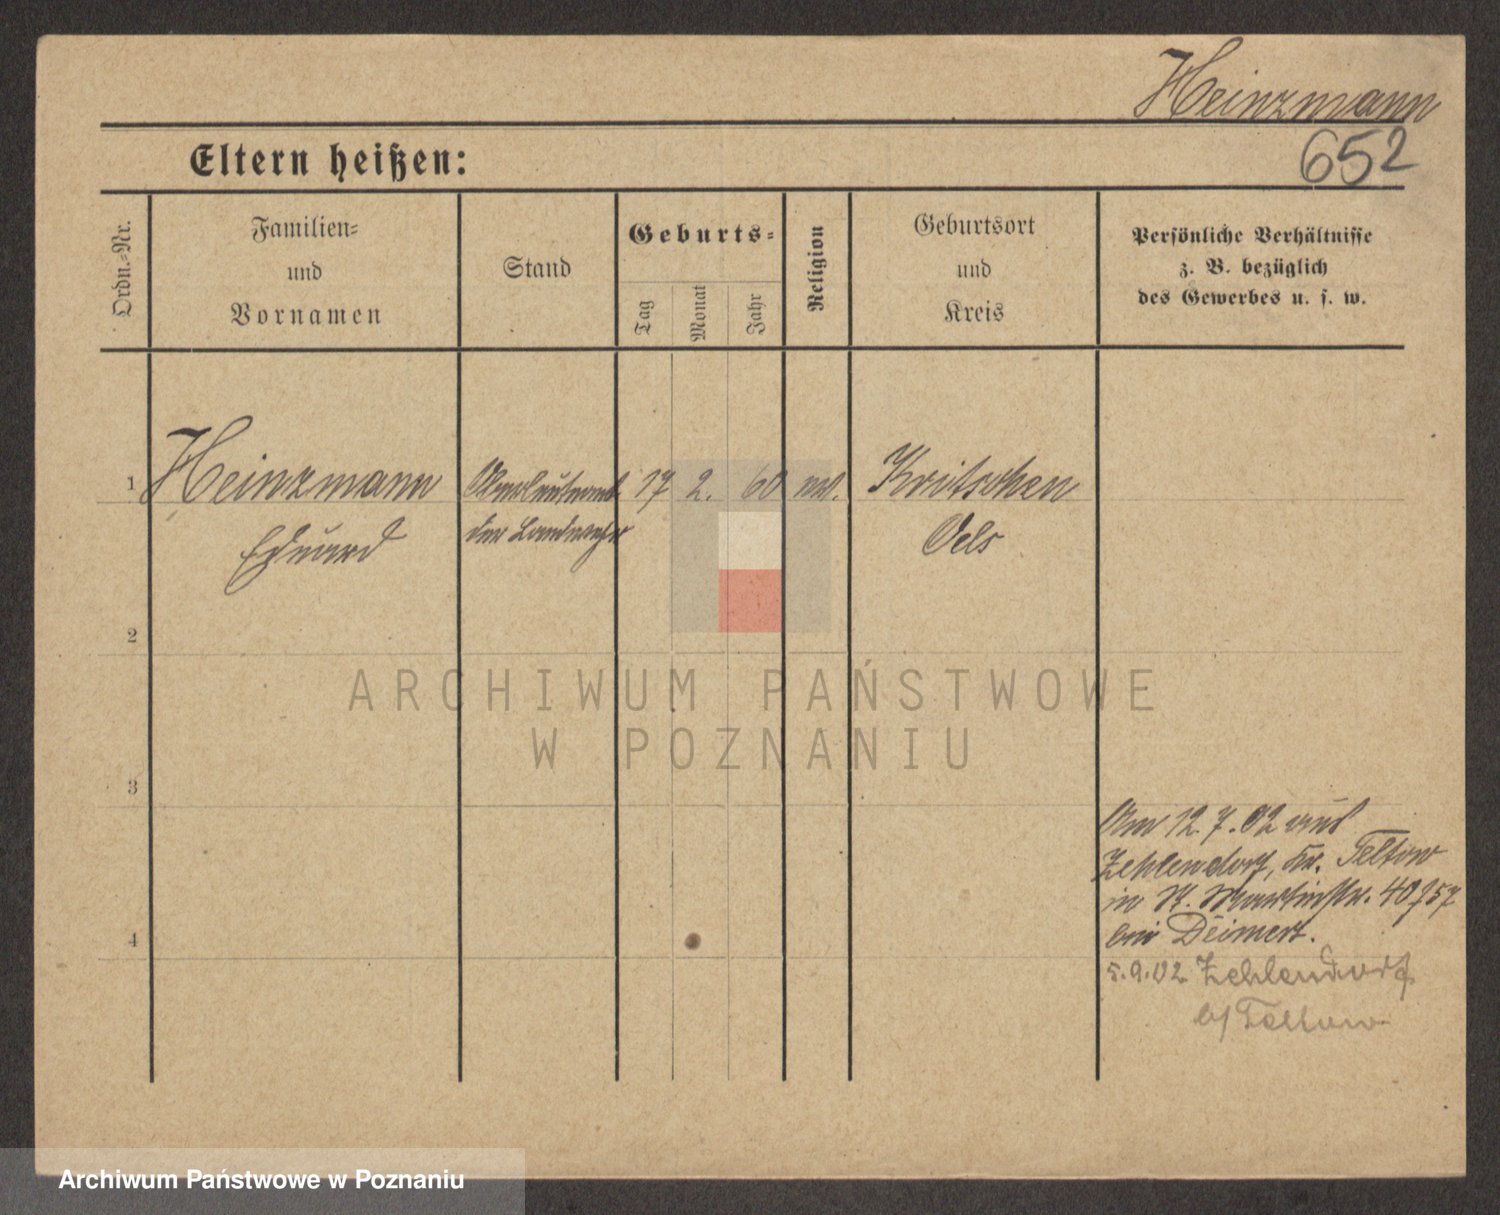 Heinzmann
652
Eltern heißen:
Ordn.-Nr.
Familien-
und
Vornamen
Stand
Geburts-
Tag
Monat
Jahr
Religion
Geburtsort
und
Kreis
Persönliche Verhältnisse
z. B. bezüglich
des Gewerbes u. s. w.
1 Heinzmann 17 2. 60 Kritschen
Eduard der Landwehr Oels
2
3
4
Am 12.7.02 aus
Zehlendorf, Kr. Teltow
in St. Martinstr. 40
bei Deimert.
5.9.02 Zehlendorf
b/ Teltow
ARCHIWUM PAŃSTWOWE
W POZNANIU
Archiwum Państwowe w Poznaniu